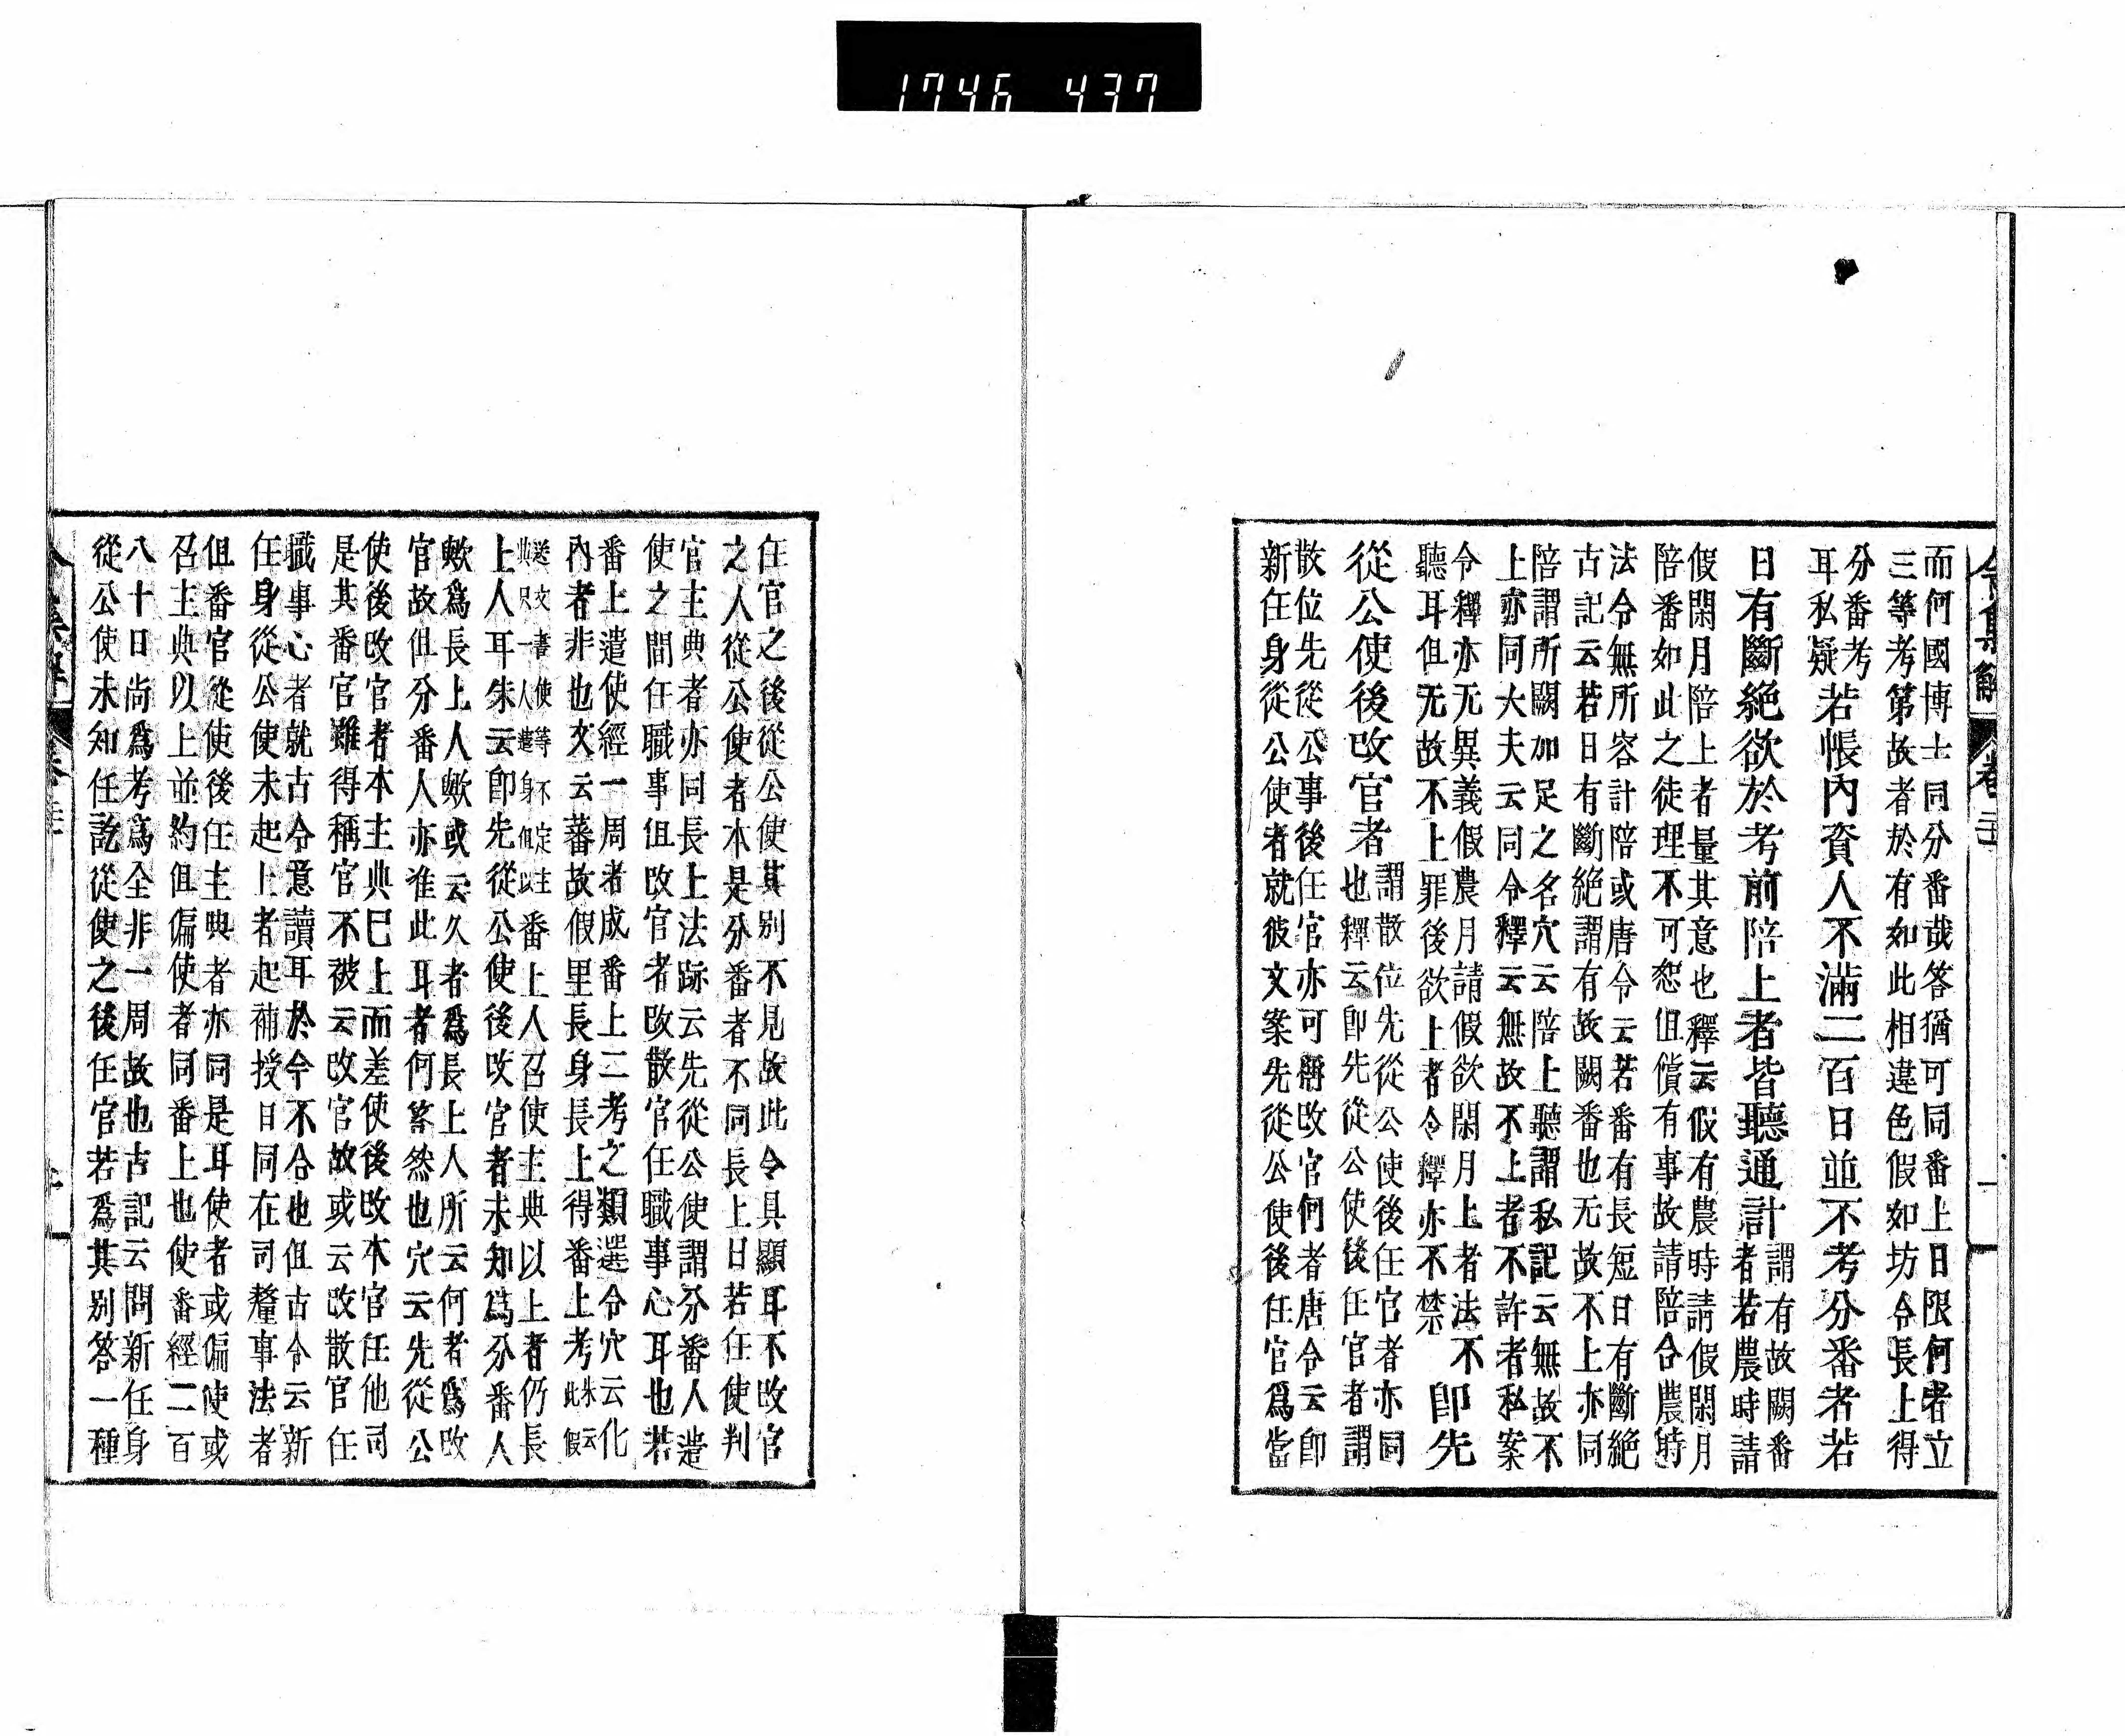 1746 437
令集解 卷二十
而何國博士同分番哉答猶可同番上日限何者立
三等考第故者於有如此相違色假如坊令長上得
分番考
耳私疑
若帳內資人不滿二百日並不考分番者若
日有斷絕欲於考前陪上者皆聽通計
謂有故闕番
者若農時請
假閑月陪上者量其意也釋云假有農時請假閑月
陪番如此之徒理不可恕但償有事故請陪合農時
法令無所容計陪或唐令云若番有長短日有斷絕
古記云若日有斷絕謂有故闕番也无故不上亦同
陪謂所闕加足之名穴云陪上聽謂私記云無故不
上亦同大夫云同令釋云無故不上者不許者私案
令釋亦无異義假農月請假欲閑月上者法不
聽耳但无故不上罪後欲上者令釋亦不禁
即先
從公使後改官者
謂散位先從公使後任官者亦同
也釋云即先從公使後任官者謂
散位先從公事後任官亦可稱改官何者唐令云即
新任身從公使者就彼文案先從公使後任官爲當
任官之後從公使其別不見故此令具顯耳不改官
之人從公使者本是分番者不同長上日若任使判
官主典者亦同長上法跡云先從公使謂分番人遣
使之間任職事但改官者改散官任職事心耳也若
番上遣使經一周者成番上二考之類選令穴云化
內者非也文云蕃故假里長身長上得番上考
朱云
此假
送文書使等不定主
典只一人遣身但以
番上人召使主典以上者仍長
上人耳朱云即先從公使後改官者未知爲分番人
歟爲長上人歟或云久者爲長上人所云何者爲改
官故但分番人亦准此耳者何答然也穴云先從公
使後改官者本主典已上而差使後改本官任他司
是其番官雖得稱官不被云改官故或云改散官任
職事心者就古令意讀耳於令不合也但古令云新
任身從公使未起上者起補授日同在司釐事法者
但番官從使後任主典者亦同是耳使者或偏使或
召主典以上並約但偏使者同番上也使番經二百
八十日尚爲考爲全非一周故也古記云問新任身
從公使未知任訖從使之後任官若爲其別答一種